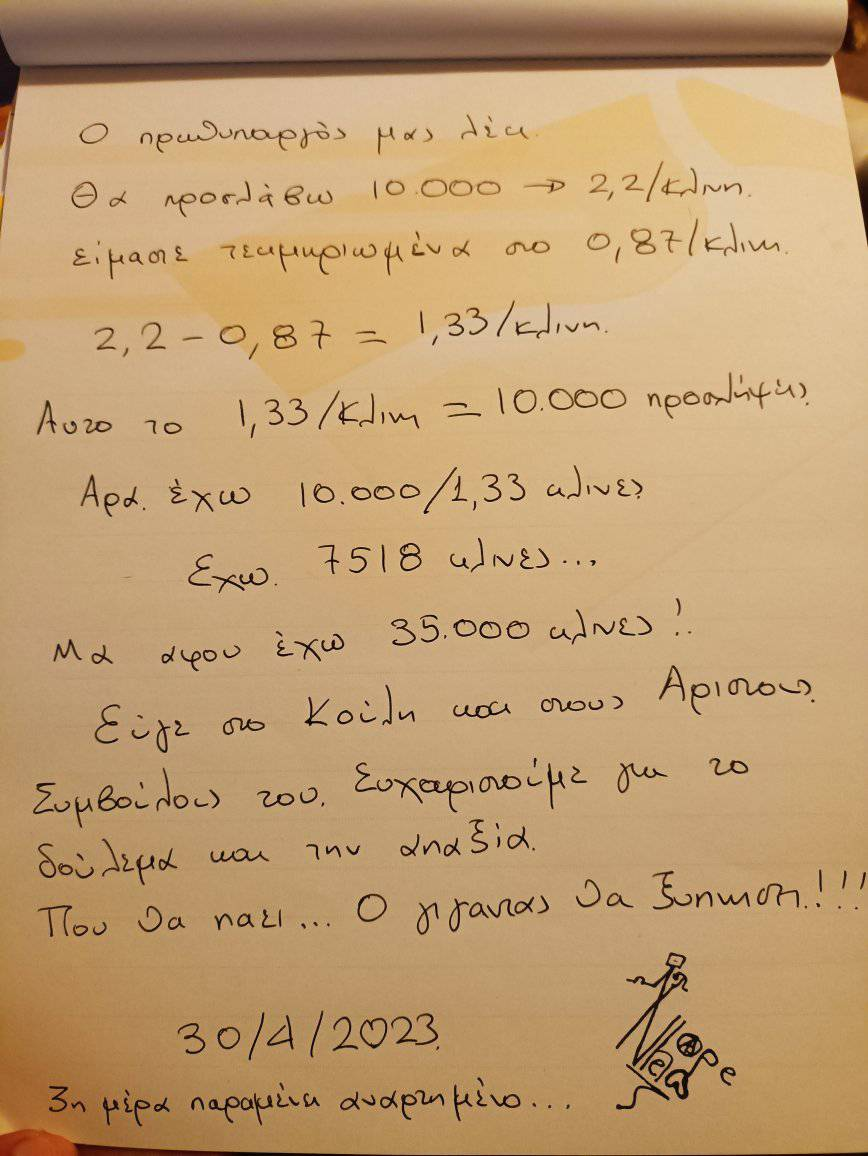 Ο πρωθυπουργός μας λέει.
Θα προσλάβω 10.000 → 2,2/κλινη.
είμαστε τεκμηριωμένα στο 0,87/κλινη.
2,2 - 0,87 = 1,33/κλινη.
Αυτο το 1,33/κλινη = 10.000 προσλήψεις.
Αρα. έχω 10.000/1,33 κλινες
Εχω. 7518 κλινες...
Μα αφου έχω 35.000 κλινες!
Εύγε στο Κούλη και στους Αριστους
Συμβούλους του. Ευχαριστούμε για το
δούλεμα και την απαξία.
Που θα παει... Ο γιγαντας θα ξυπνηση!!!
30/4/2023.
3η μέρα παραμένει αναρτημένο...